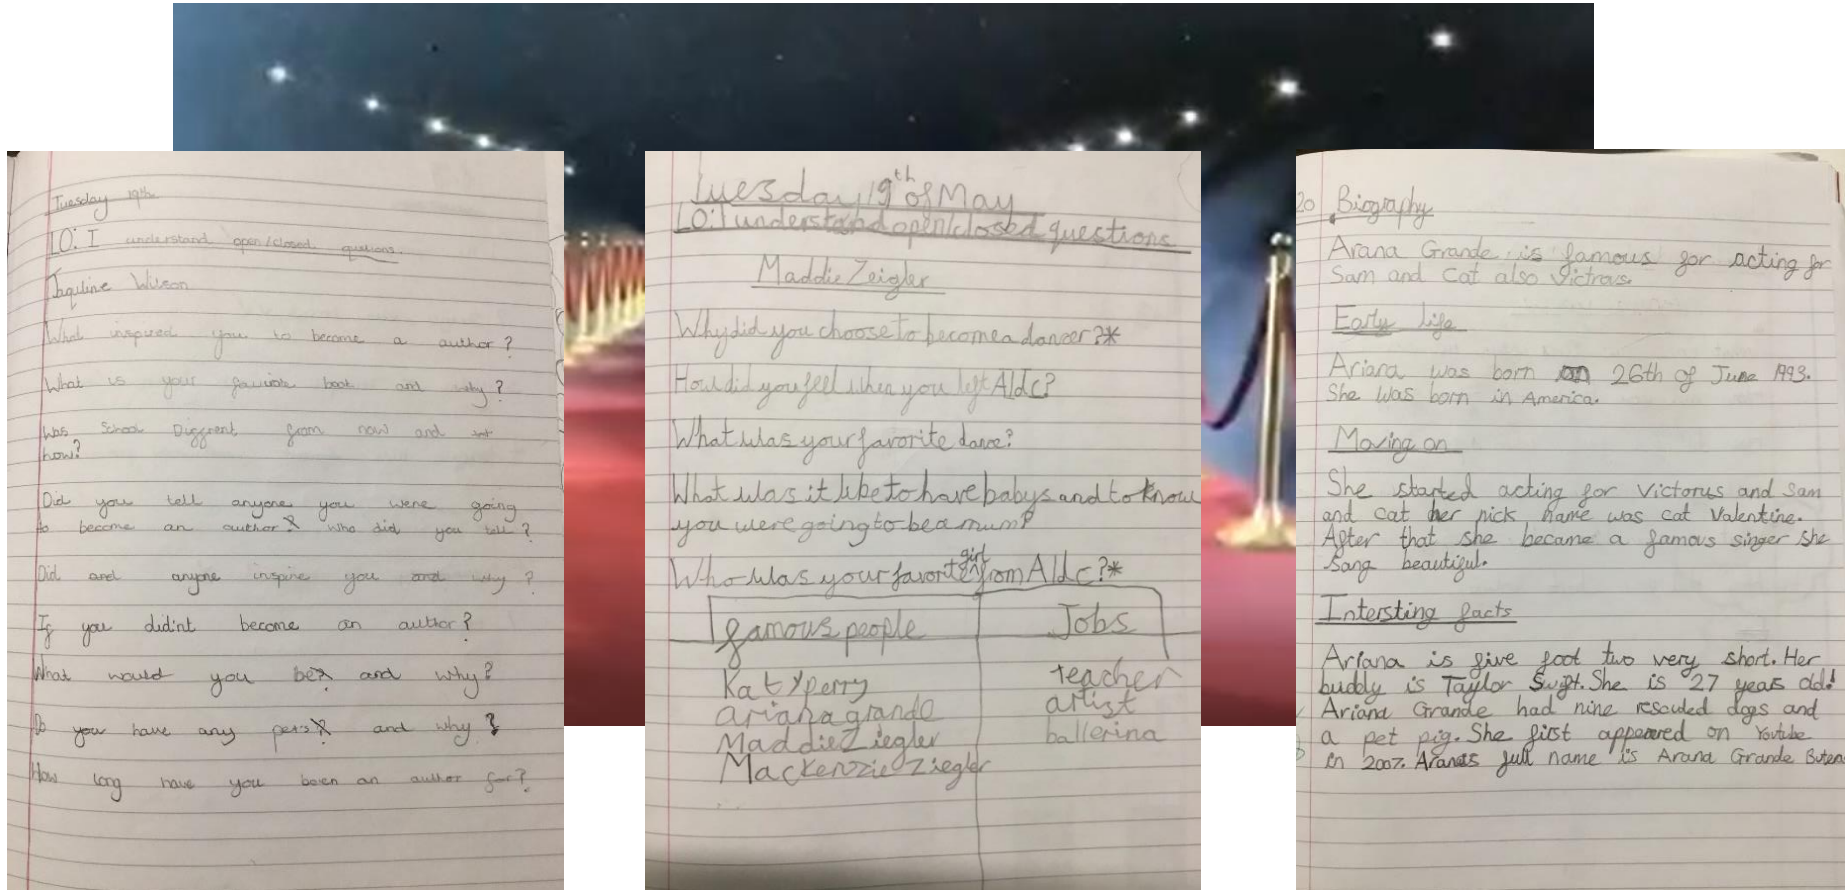 Tuesday 19th
LO: I understand open/closed qustions.
Jaquline Wilson
What inspired you to become a author?
What is your favriote book and why?
Was School Diffrent from now and
how?
Did you tell anyone you were going
to become an author? Who did you tell?
Did and anyone inspire you and why?
If you did'nt become an author?
What would you be? and why?
Do you have any pets? and why?
How long have you been an author for?
Tuesday 19th of May
LO: I understand open/closed questions
Maddie Zeigler
Why did you choose to become a dancer?*
How did you feel when you left Aldc?
What was your favorite dance?
What was it like to have babys and to know
you were going to be a mum?
Who was your favorite girl from Aldc?*
famous people Jobs
Katy perry teacher
ariana grande artist
Maddie Ziegler ballerina
Mackenzie Ziegler
20 Biography
Arana Grande is famous for acting for
Sam and Cat also Victrois.
Early life
Ariana was born on 26th of June 1993.
She was born in America.
Moving on
She started acting for Victorus and Sam
and cat her nick name was cat Valentine.
After that she became a famous singer she
sang beautiful.
Intersting facts
Ariana is five foot two very short. Her
buddy is Taylor Swift. She is 27 years old!
Ariana Grande had nine rescuded dogs and
a pet pig. She first appeared on Youtube
in 2007. Aranas full name is Arana Grande Buten